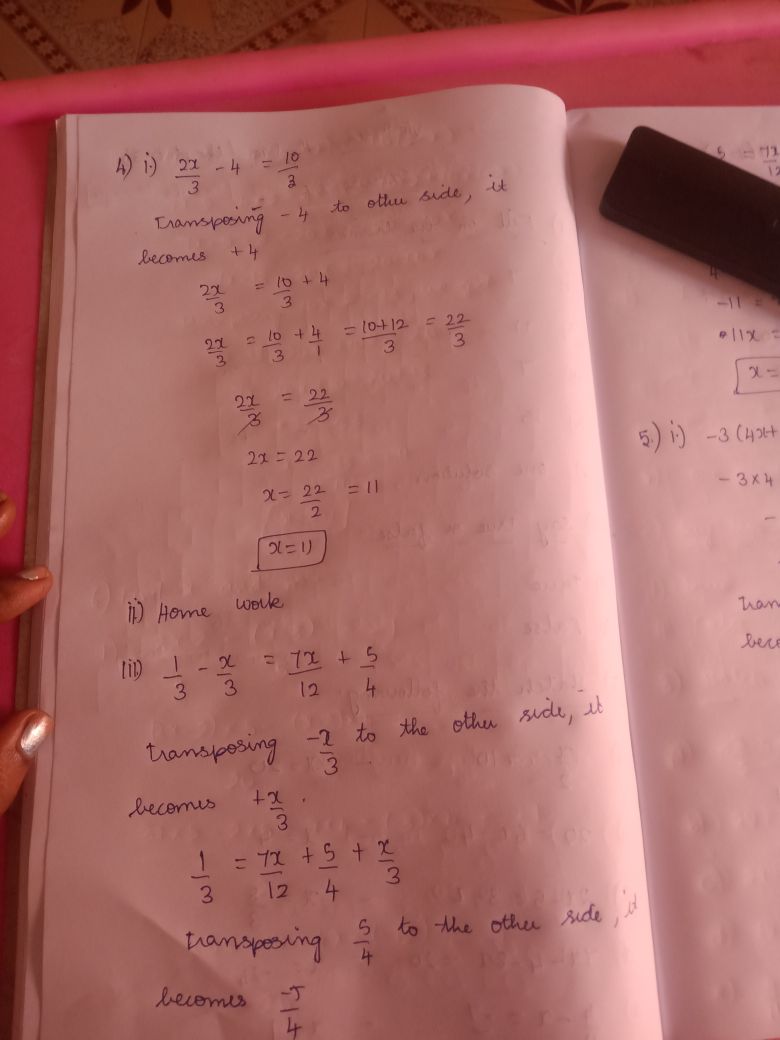 4) i.) 2x/3 - 4 = 10/3
Transposing - 4 to other side, it
becomes +4
2x/3 = 10/3 + 4
2x/3 = 10/3 + 4/1 = 10+12/3 = 22/3
2x/3 = 22/3
2x = 22
x = 22/2 = 11
x = 11
ii) Home work
iii) 1/3 - x/3 = 7x/12 + 5/4
transposing -x/3 to the other side, it
becomes +x/3.
1/3 = 7x/12 + 5/4 + x/3
transposing 5/4 to the other side, it
becomes -5/4
5 = 7x/12
-11 =
11x =
x =
5.) i.) -3 (4x+
- 3 x 4
-
tran
beco